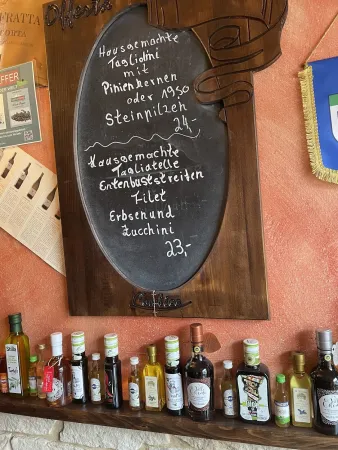 FRATTA
Hausgemachte
Tagliolini
mit
Pinienkernen
oder 1950
Steinpilzen
24,-
Hausgemachte
Tagliatelle
Entenbuststreifen
Filet
Erbsen und
Zucchini
23,-